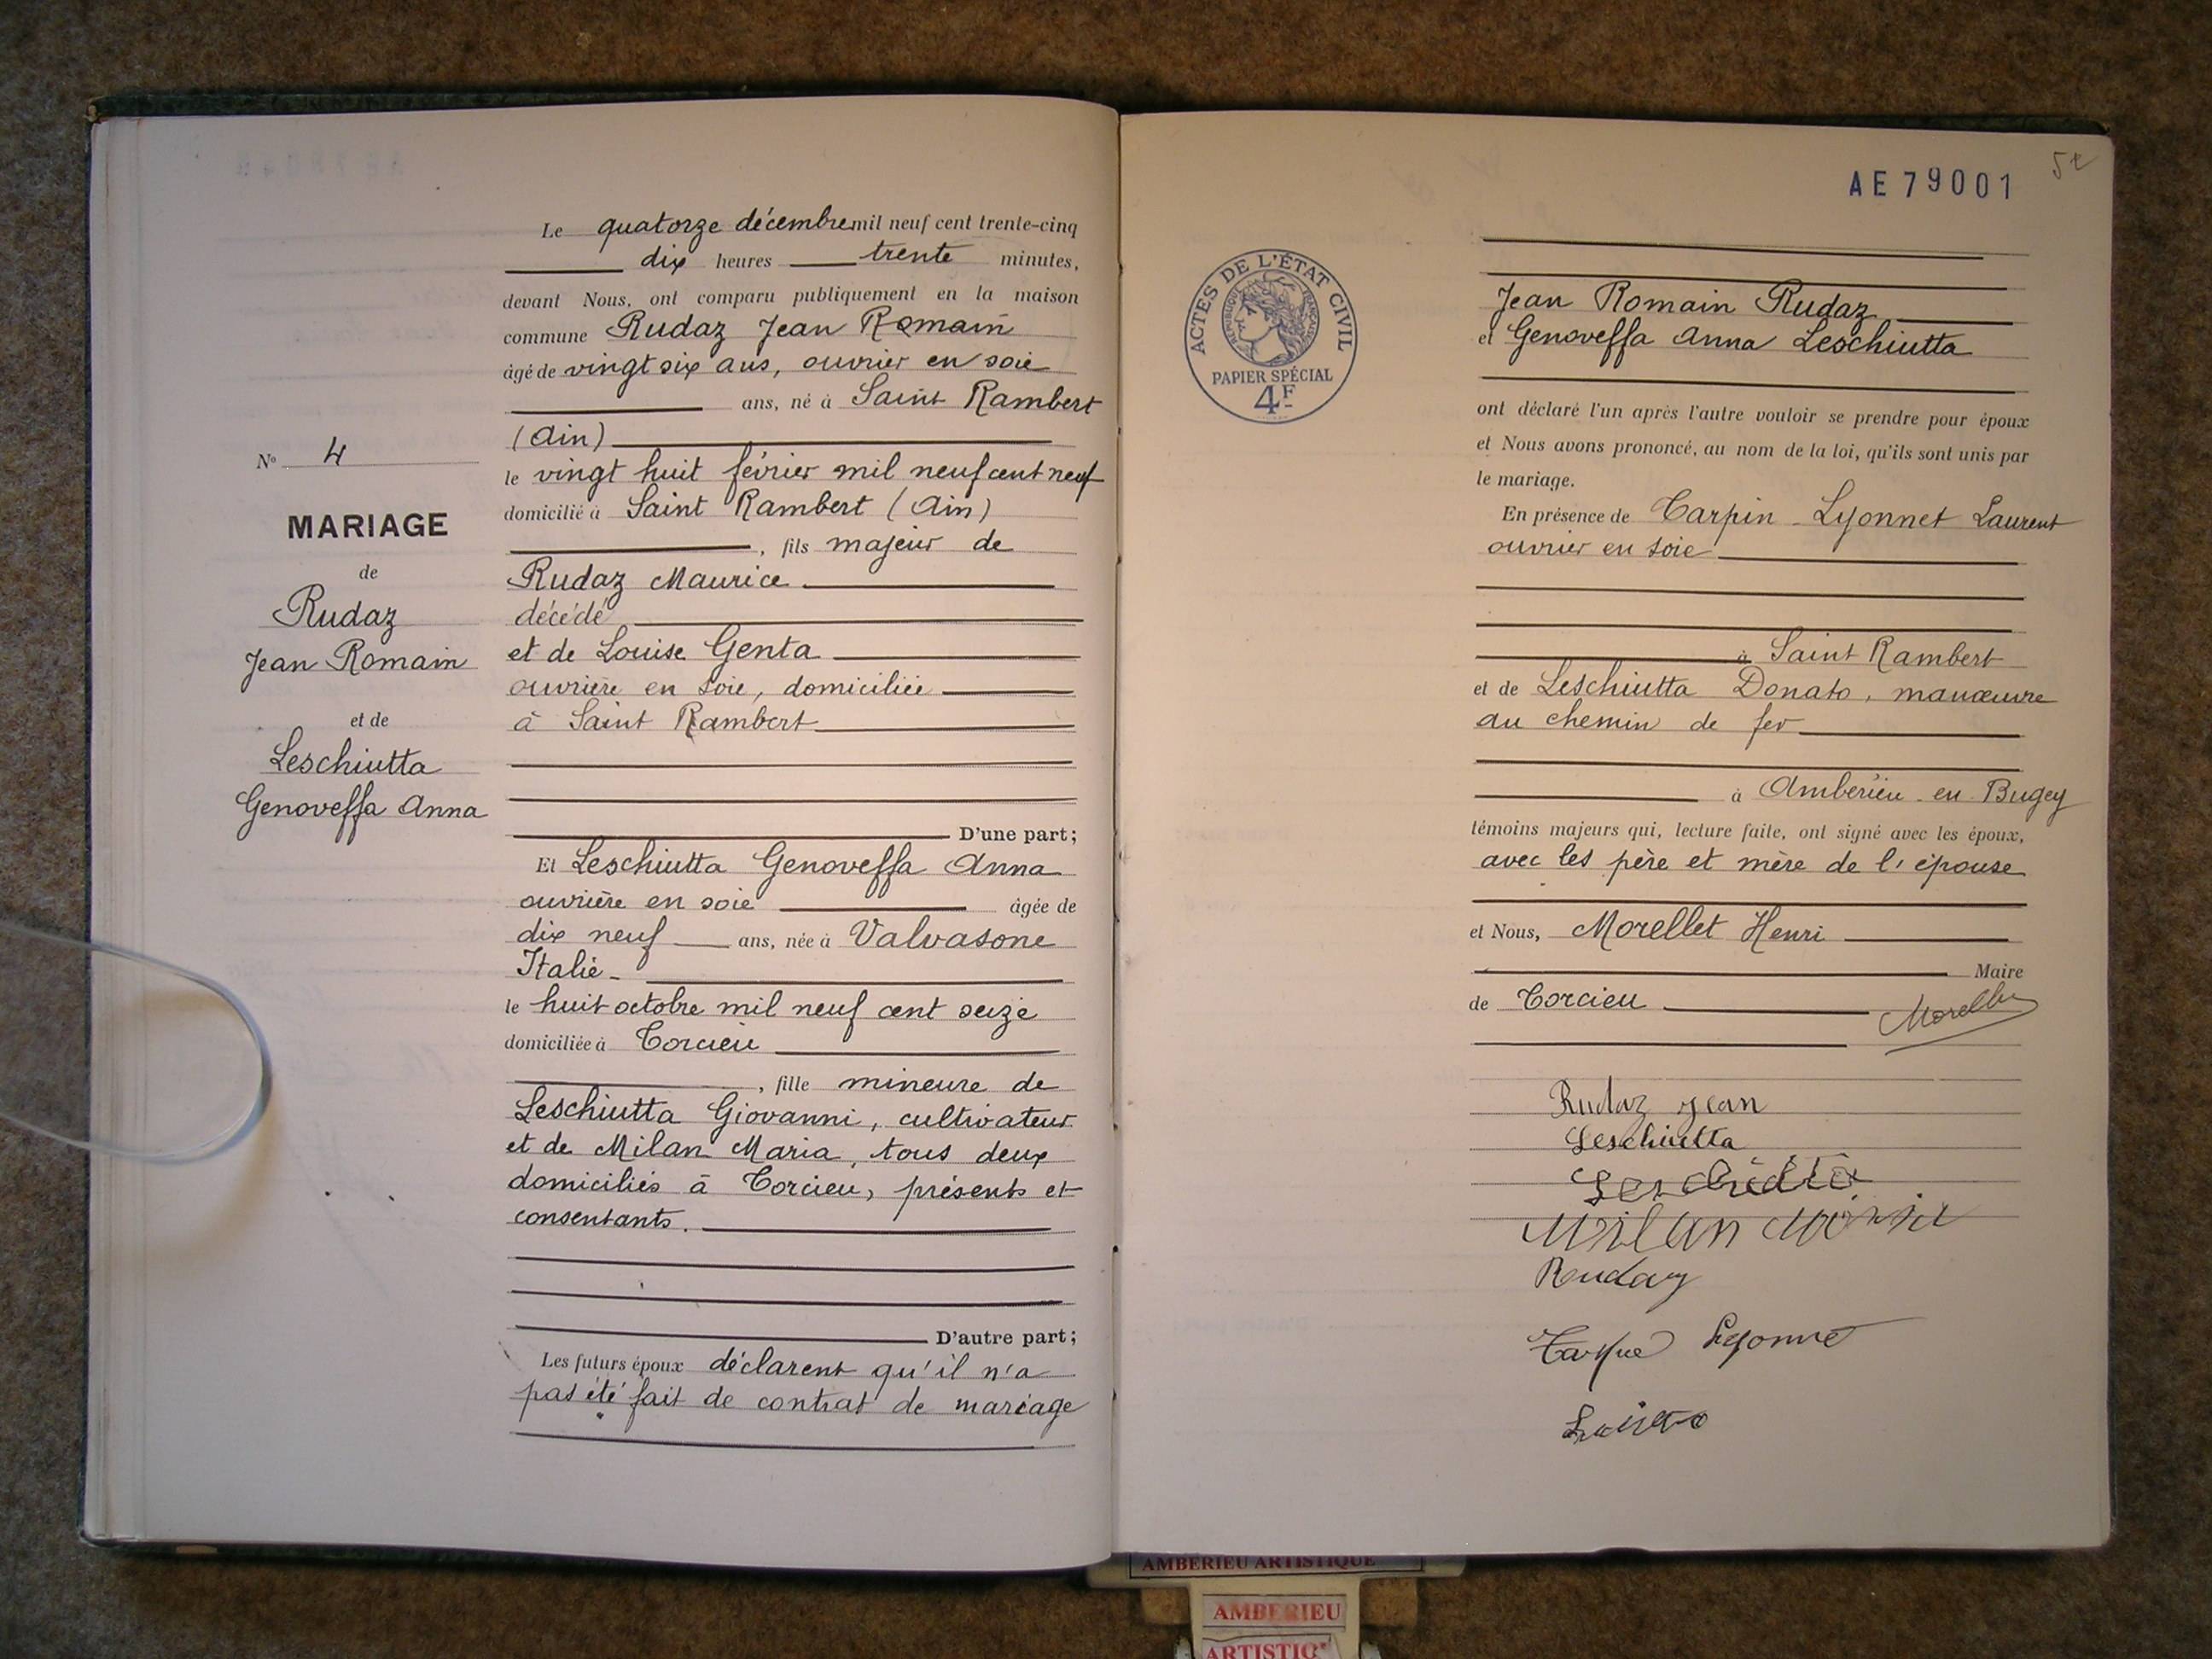 Le quatorze décembre mil neuf cent trente-cinq
dix heures trente minutes,
devant Nous, ont comparu publiquement en la maison
commune Rudaz Jean Romain
âgé de vingt six ans, ouvrier en soie
ans, né à Saint Rambert
(Ain)
le vingt huit février mil neuf cent neuf
domicilié à Saint Rambert (Ain)
, fils majeur de
Rudaz Maurice
décédé
et de Louise Genta
ouvrière en soie, domiciliée
à Saint Rambert
D'une part;
Et Leschiutta Genoveffa Anna
ouvrière en soie âgée de
dix neuf ans, née à Valvasone
Italie
le huit octobre mil neuf cent seize
domiciliée à Torcieu
, fille mineure de
Leschiutta Giovanni, cultivateur
et de Milan Maria, tous deux
domiciliés à Torcieu, présents et
consentants.
D'autre part;
Les futurs époux déclarent qu'il n'a
pas été fait de contrat de mariage
No 4
MARIAGE
de
Rudaz
Jean Romain
et de
Leschiutta
Genoveffa Anna
AE79001
ACTES DE L'ÉTAT CIVIL
RÉPUBLIQUE FRANÇAISE
PAPIER SPÉCIAL
4F
Jean Romain Rudaz
et Genoveffa Anna Leschiutta
ont déclaré l'un après l'autre vouloir se prendre pour époux
et Nous avons prononcé, au nom de la loi, qu'ils sont unis par
le mariage.
En présence de Tarpin-Lyonnet Laurent
ouvrier en soie
à Saint Rambert
et de Leschiutta Donato, manœuvre
au chemin de fer
à Ambérieu-en-Bugey
témoins majeurs qui, lecture faite, ont signé avec les époux,
avec les père et mère de l'épouse
et Nous, Morellet Henri
Maire
de Torcieu
Rudaz Jean
Leschiutta
Milan Maria
Rudaz
AMBERIEU ARTISTIQUE
AMBERIEU